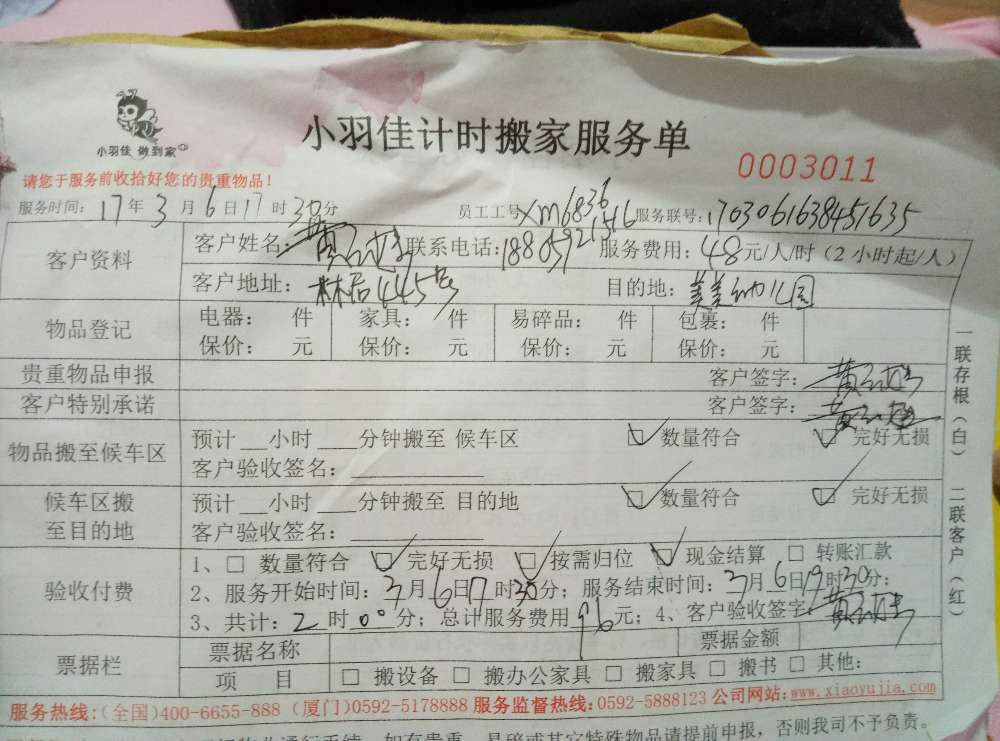 小羽佳 做到家
小羽佳计时搬家服务单
0003011
请您于服务前收拾好您的贵重物品!
服务时间: 17年3月6日17时30分 员工工号 xm6836 服务联号: 1703061638451635
客户资料 客户姓名: 黄 联系电话: 服务费用: 48元/人/时 (2小时起/人)
客户地址: 林后445号 目的地: 美美幼儿园
物品登记 电器: 件 家具: 件 易碎品: 件 包裹: 件
保价: 元 保价: 元 保价: 元 保价: 元
贵重物品申报 客户签字: 黄
客户特别承诺 客户签字: 黄
物品搬至候车区 预计 __小时 ___分钟搬至 候车区 ☑数量符合 ☑完好无损
客户验收签名: __________
候车区搬至目的地 预计 __小时 ___分钟搬至 目的地 ☑数量符合 ☑完好无损
客户验收签名: __________
验收付费 1、□ 数量符合 ☑完好无损 ☑按需归位 ☑现金结算 □ 转账汇款
2、服务开始时间: 3月6日17时30分; 服务结束时间: 3月6日19时30分;
3、共计: 2时00分; 总计服务费用96元; 4、客户验收签字 黄
票据栏 票据名称 票据金额
项 目 □ 搬设备 □ 搬办公家具 □ 搬家具 □ 搬书 □ 其他:
一联存根(白) 二联客户(红)
服务热线:(全国)400-6655-888 (厦门)0592-5178888 服务监督热线:0592-5888123 公司网站:www.xiaoyujia.com
如有贵重、易碎或其它特殊物品请提前申报，否则我司不予负责。